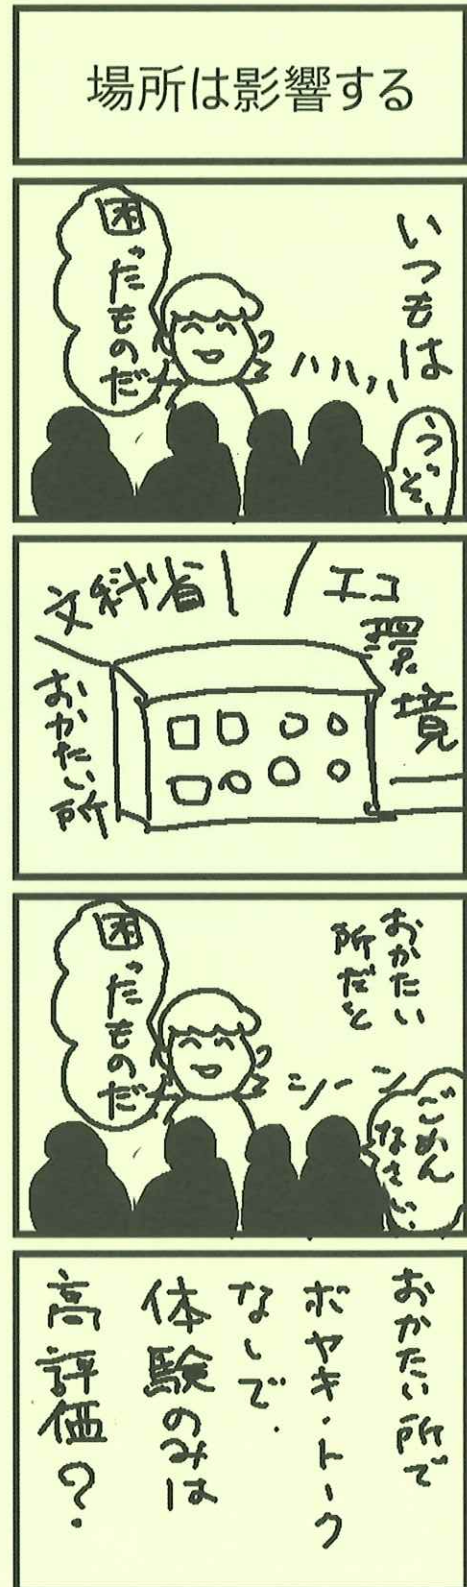 場所は影響する
いつもは
ハハハハ
困ったものだ
エコ
環境
文科省
おかたい所
おかたい
所だと
シーン
ごめん
なさい
困ったものだ
おかたい所で
ボヤキ・トーク
なしで
体験のみは
高評価?